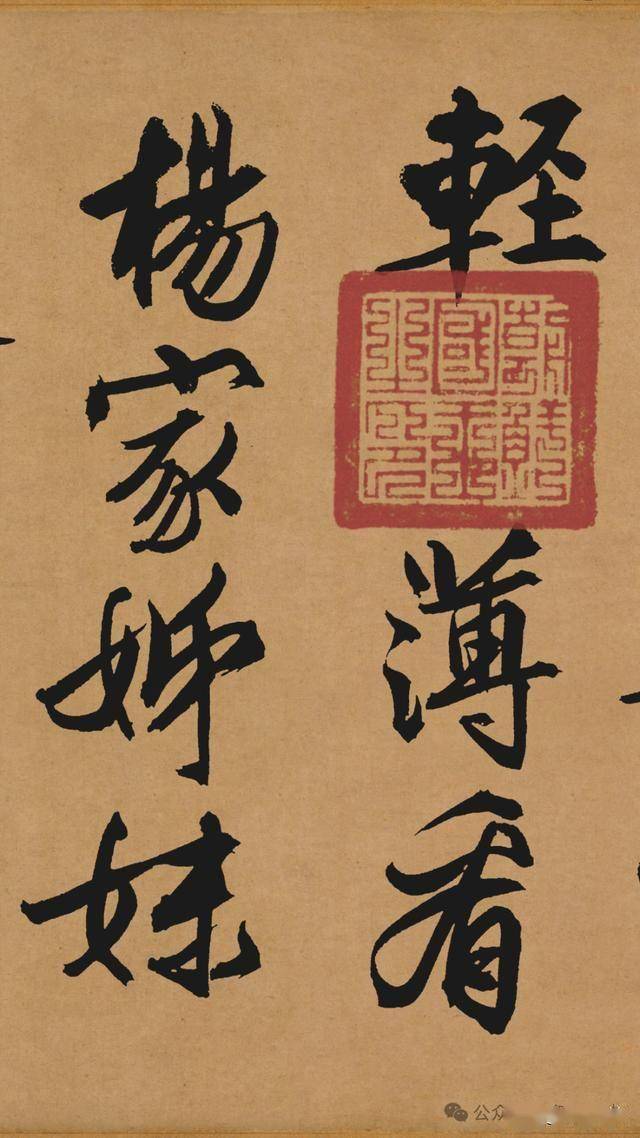 軽薄看
楊家姊妹
公众